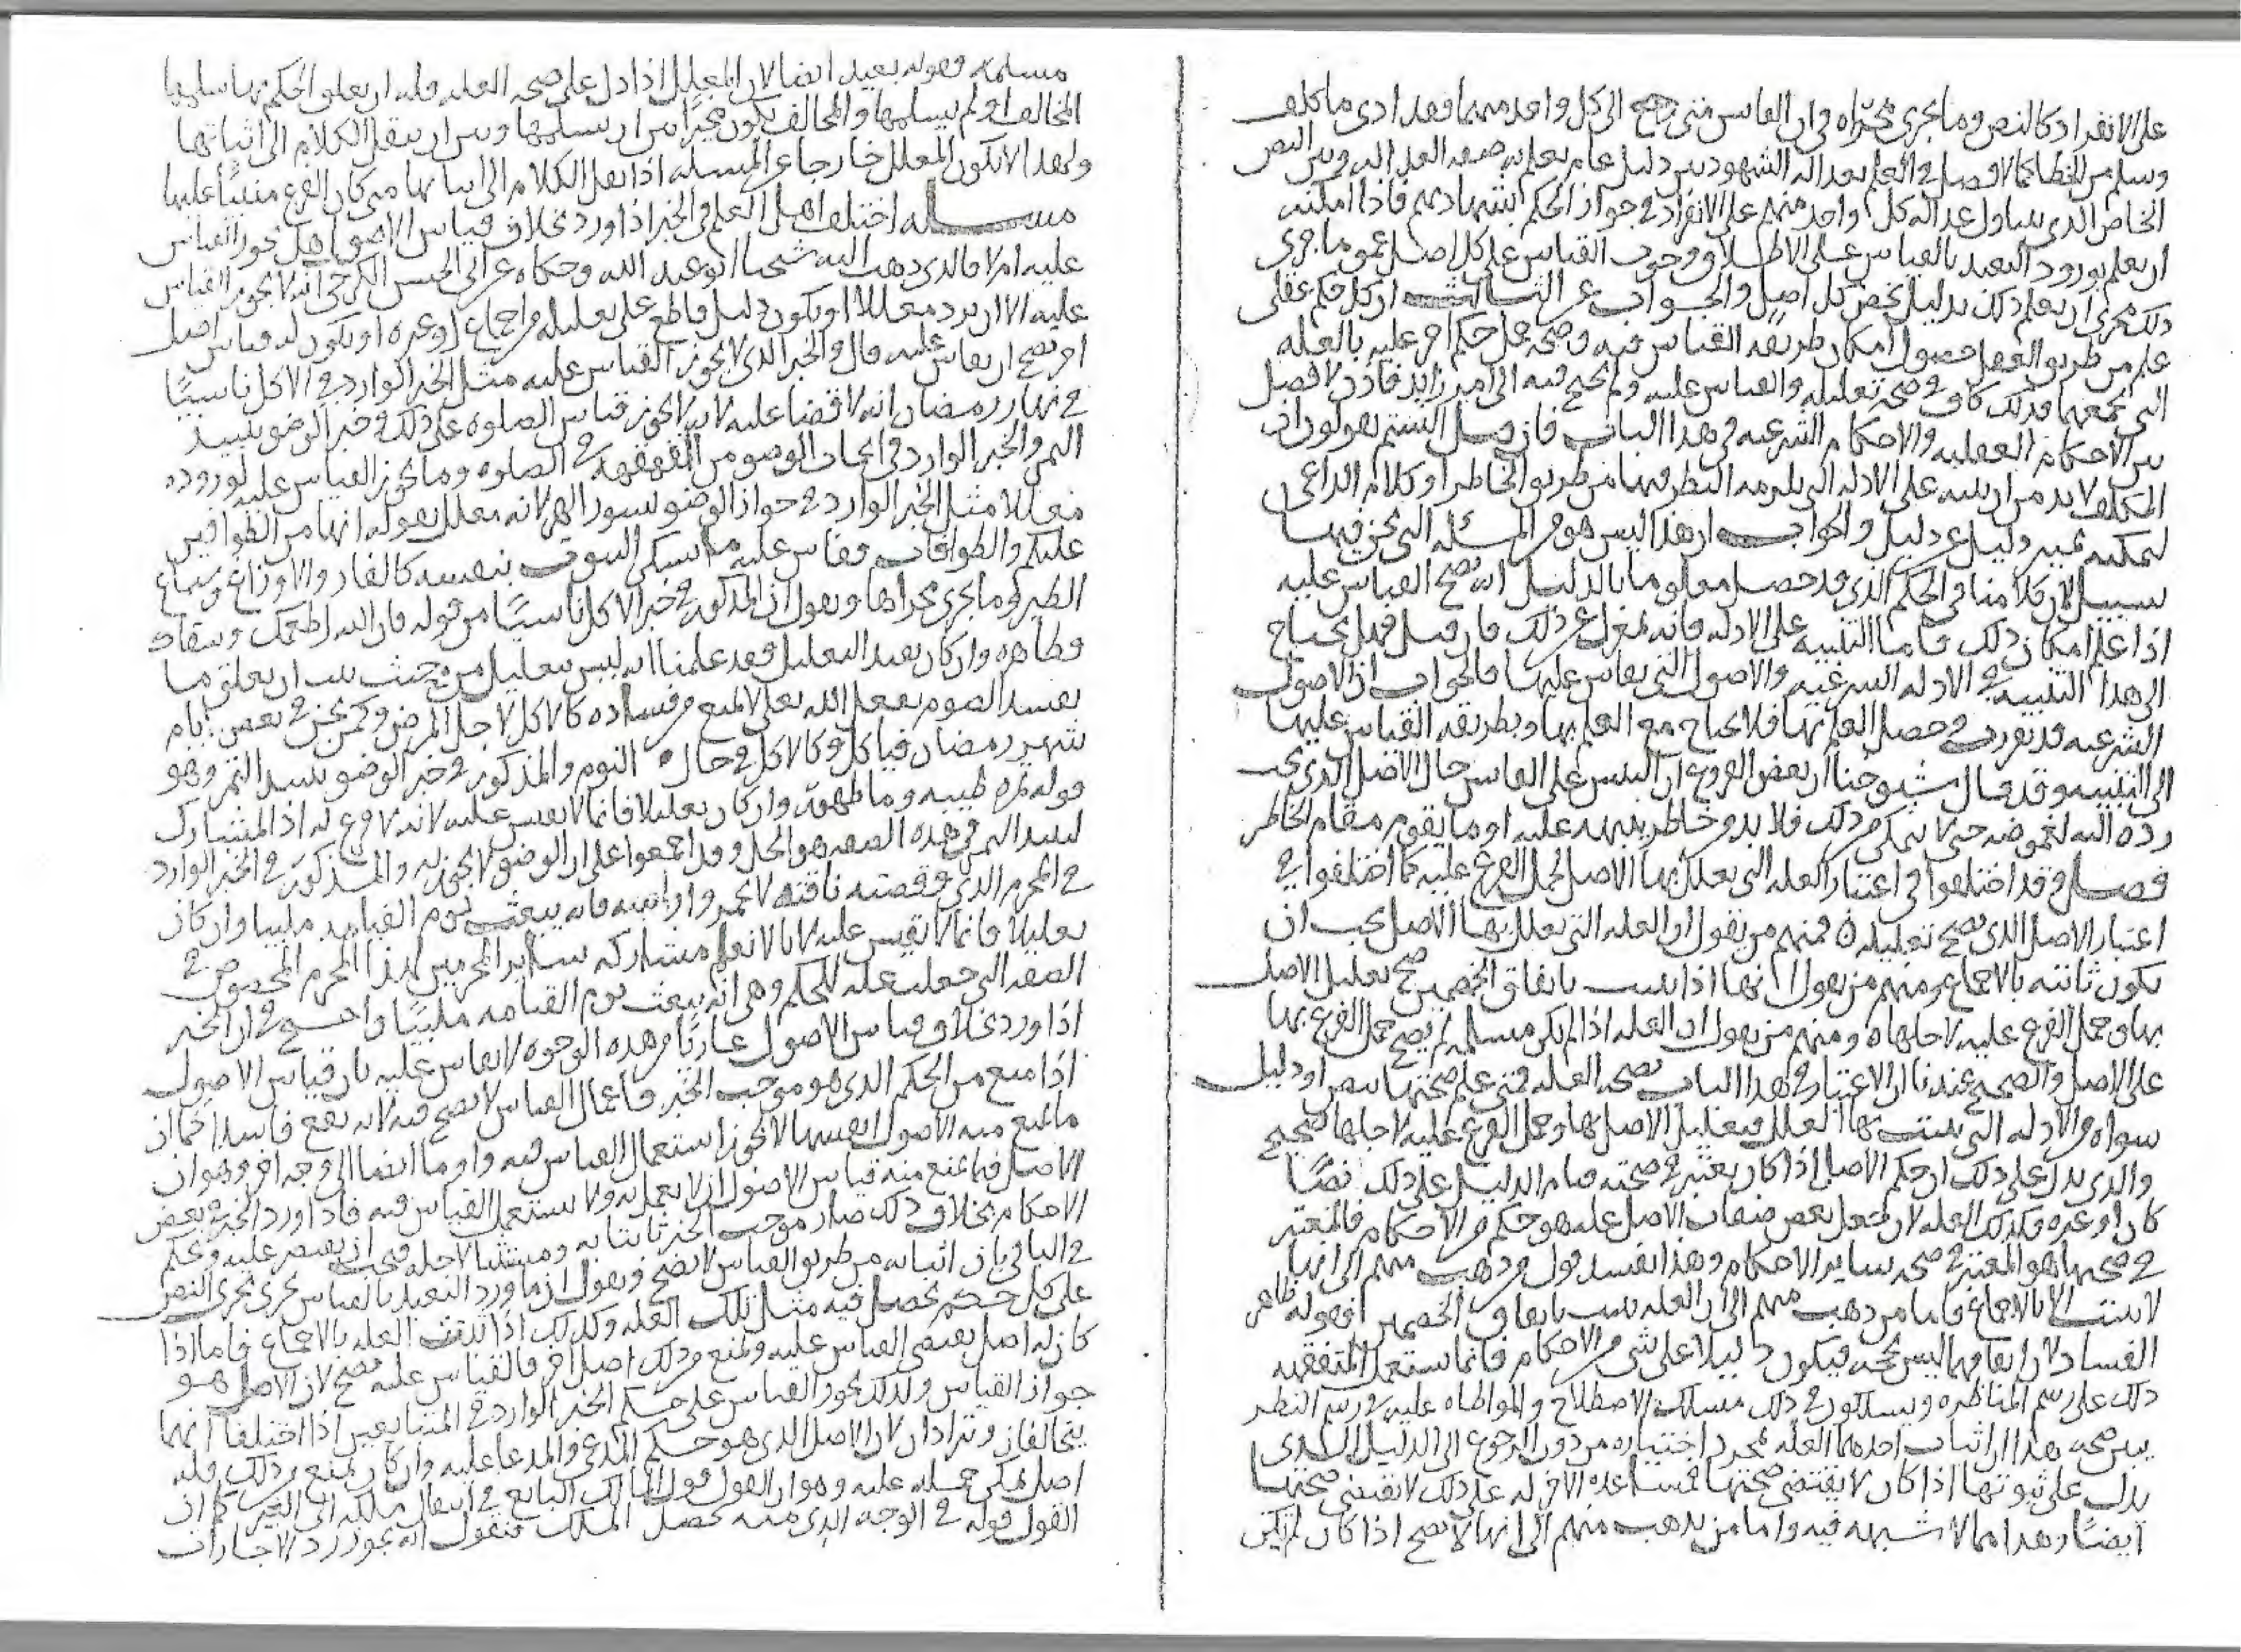 على الانفراد كالنص وما يجري مجراه في ان القايس متى رجع الى كل واحد منهما فقد ادى ما كلف
وسلم من الخطا كما لا فصل في العلم بعدالة الشهود بين دليل عام يعلم به صفه العداله وبين النص
الخاص الذي يتناول عداله كل واحد منهم على الانفراد في جواز الحكم بشهادتهم فاذا امكنه
ان يعلم بورود التعبد بالقياس على الاطلاق وجوب القياس على كل اصل عموما جرى
ذلك مجرى ان يعلم ذلك بدليل يخص كل اصل والجواب عن الثالث ان كل حكم عقلي
علم من طريق العقل حصول امكان طريقه القياس فيه وصحه حمل حكم اخر عليه بالعله
التي تجمعهما فذلك كاف في صحه تعليله والقياس عليه ولم يحتج فيه الى امر زايد فاذن لا فصل
بين الاحكام العقليه والاحكام الشرعيه في هذا الباب فان قيل الستم تقولون ان
المكلف لا بد من ان ينبه على الادله التي يلزمه النظر فيها من طريق الخاطر او كلام الداعي
ليمكنه تمييز دليل عن دليل والجواب ان هذا ليس هو من المسئله التي نحن فيها
سبيل لان كلامنا في الحكم الذي قد حصل معلوما بالدليل انه يصح القياس عليه
اذا علم امكان ذلك فاما التنبيه على الادله فانه بمعزل عن ذلك فان قيل فهل يحتاج
الى هذا التنبيه في الادله الشرعيه والاصول التي يقاس عليها فالجواب ان الاصول
الشرعيه قد تقررت وحصل العلم بها فلا يحتاج مع العلم بها وبطريقه القياس عليها
الى التنبيه وقد قال شيوخنا ان بعض الفروع ان التبس على القايس حال الاصل الذي يجب
رده اليه لغموضه حتى لا يتمكن من ذلك فلا بد من خاطر ينبهه عليه او ما يقوم مقام الخاطر
فصل وقد اختلفوا في اعتبار العله التي يعلل بها الاصل لحمل الفرع عليه كما اختلفوا في
اعتبار الاصل الذي يصح تعليله فمنهم من يقول ان العله التي تعلل بها الاصل يجب ان
يكون ثابته بالاجماع ومنهم من يقول انها اذا ثبتت باتفاق الخصمين صح تعليل الاصل
بها وحمل الفرع عليه لاجلها ومنهم من يقول ان العله اذا لم يكن مسلمه لم يصح حمل الفرع بها
على الاصل والصحيح عندنا ان الاعتبار في هذا الباب بصحه العله فمتى علم صحتها بنص او دليل
سواه من الادله التي يثبت بها العلل فتعليل الاصل بها وحمل الفرع عليه لاجلها صحيح
والذي يدل على ذلك ان حكم الاصل اذا كان يعتبر في صحته قيام الدليل على ذلك نصا
كان او غيره فكذلك العله لان جعل بعض صفات الاصل عله هو حكم من الاحكام فالمعتبر
في صحتها هو المعتبر في صحه ساير الاحكام وهذا يفسد قول من ذهب منهم الى انها
لا يثبت الا بالاجماع فاما من ذهب منهم الى ان العله يثبت باتفاق الخصمين فقوله ظاهر
الفساد لان اتفاقهما ليس بحجه فيكون دليلا على شي من الاحكام فانما يستعمل المتفقهه
ذلك على رسم المناظره ويسلكون في ذلك مسلك الاصطلاح والمواطاه عليه في رسم النظر
يبين صحه هذا ان اثبات احدهما العله بمجرد اختياره من دون الرجوع الى الدليل الذي
يدل على ثبوتها اذا كان لا يقتضي صحتها فمساعده الاخر له على ذلك لا يقتضي صحتها
ايضا وهذا مما لا شبهه فيه واما من يذهب منهم الى انها لا تصح اذا كان لم يكن
مسلمه فقوله بعيد ايضا لان المعلل اذا دل على صحه العله فله ان يعلق الحكم بها سلمها
المخالف او لم يسلمها والمخالف يكون مخيرا بين ان يسلمها وبين ان ينقل الكلام الى اثباتها
ولهذا لا يكون المعلل خارجا عن المسئله اذا نقل الكلام الى اثباتها متى كان الفرع مبنيا عليها
مسئله اختلف اهل العلم في الخبر اذا ورد بخلاف قياس الاصول هل يجوز القياس
عليه ام لا فالذي ذهب اليه شيخنا ابو عبد الله وحكاه عن ابي الحسن الكرخي انه لا يجوز القياس
عليه الا ان يرد معللا او يكون دليل قاطع على تعليله من اجماع او غيره او يكون له قياس اصل
اخر يصح ان يقاس عليه قال والخبر الذي لا يجوز القياس عليه مثل الخبر الوارد في الاكل ناسيا
في نهار رمضان انه لا قضا عليه لانه لا يجوز قياس الصلوه على ذلك وخبر الوضو بنبيذ
التمر والخبر الوارد في ايجاب الوضو من القهقهه في الصلوه وما يجوز القياس عليه لوروده
معللا مثل الخبر الوارد في جواز الوضو بسور الهر لانه معلل بقوله انها من الطوافين
عليكم والطوافات فقاس عليه ما سكن البيوت بنفسه كالفار والاوزاغ وسباع
الطير وما يجري مجراها ويقول ان المذكور في خبر الاكل ناسيا من قوله فان الله اطعمك وسقاك
فظاهره وان كان يفيد التعليل فقد علمنا انه ليس بتعليل من حيث ثبت ان تعلق ما
يفسد الصوم بفعل الله تعلى لا يمنع من فساده كالاكل لاجل المرض وكمن يجن في بعض ايام
شهر رمضان فياكل وكالاكل في حال النوم والمذكور في خبر الوضو بنبيذ التمر وهو
قوله تمره طيبه وما طهور وان كان تعليلا فانما لا نقيس عليه لانه لا فرع له اذ المشارك
لنبيذ التمر في هذه الصفه هو الخل وقد اجمعوا على ان الوضو لا يجوز به والمذكور في الخبر الوارد
في المحرم الذي وقصته ناقته لا تخمروا راسه فانه يبعث يوم القيامه ملبيا وان كان
تعليلا فانما لا نقيس عليه لانا لا نعلم مشاركه ساير المحرمين لهذا المحرم المخصوص في
الصفه التي جعلت عله للحكم وهي انه يبعث يوم القيامه ملبيا واحتج في ان الخبر
اذا ورد بخلاف قياس الاصول عاريا من هذه الوجوه لا يقاس عليه بان قياس الاصول
اذا منع من الحكم الذي هو موجب الخبر فاعمال القياس لا يصح فيه لانه يقع فاسدا كما ان
ما تمنع منه الاصول انفسها لا يجوز استعمال القياس فيه واوما ايضا الى وجه اخر وهو ان
الاصل فيما يمنع منه قياس الاصول ان لا يعمل به ولا يستعمل القياس فيه فاذا ورد الخبر في بعض
الاحكام بخلاف ذلك صار موجب الخبر ثابتا به ومستثنيا لاجله فيجب ان يقتصر عليه ونحكم
في الباقي بان اثباته من طريق القياس لا يصح ونقول ان ما ورد التعبد بالقياس يجري مجرى النص
على كل حكم يحصل فيه مثل تلك العله وكذلك اذا ثبتت العله بالاجماع فاما اذا
كان له اصل يقتضي القياس عليه ويمنع من ذلك اصل اخر فالقياس عليه صحيح لان الاصل هو
جواز القياس ولذلك يجوز القياس على حكم الخبر الوارد في المتبايعين اذا اختلفا انهما
يتحالفان ويترادان لان الاصل الذي هو حكم المدعي والمدعا عليه وان كان يمنع من ذلك فله
اصل يمكن حمله عليه وهو ان القول قول المالك البايع في انتقال ملكه الى الغير كما ان
القول قوله في الوجه الذي منه يحصل الملك فنقول انه يجوز رد الاجارات